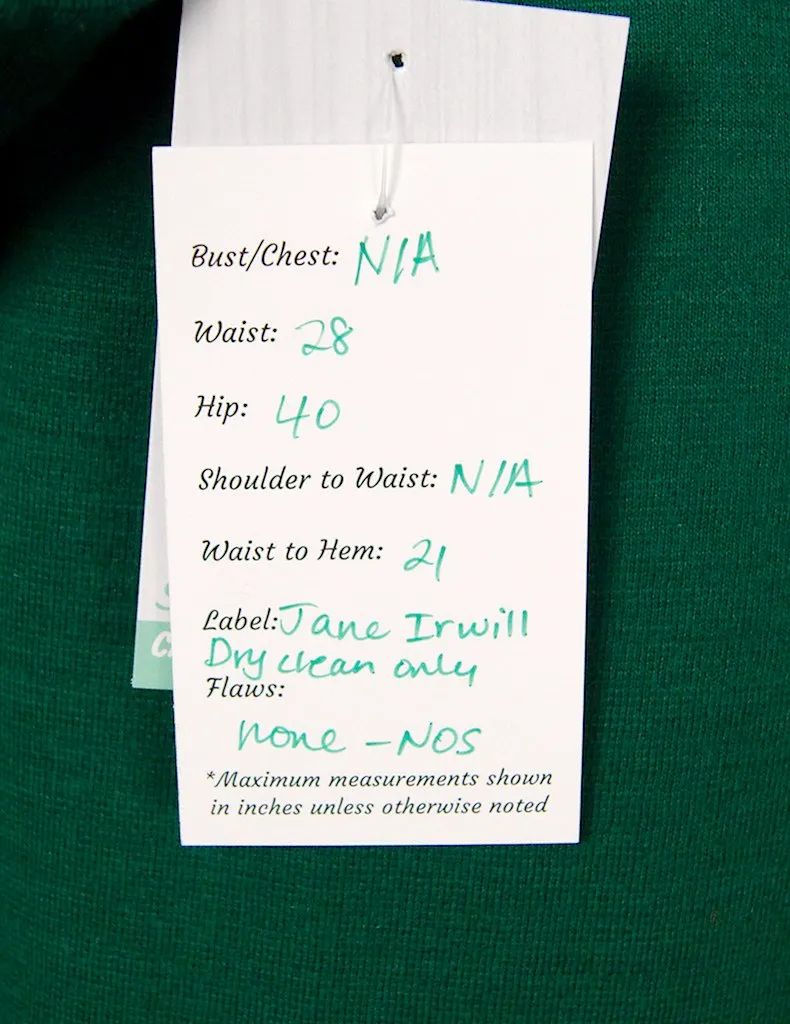 Bust/Chest: N/A
Waist: 28
Hip: 40
Shoulder to Waist: N/A
Waist to Hem: 21
Label: Jane Irwill
Dry clean only
Flaws:
none - NOS
*Maximum measurements shown
in inches unless otherwise noted